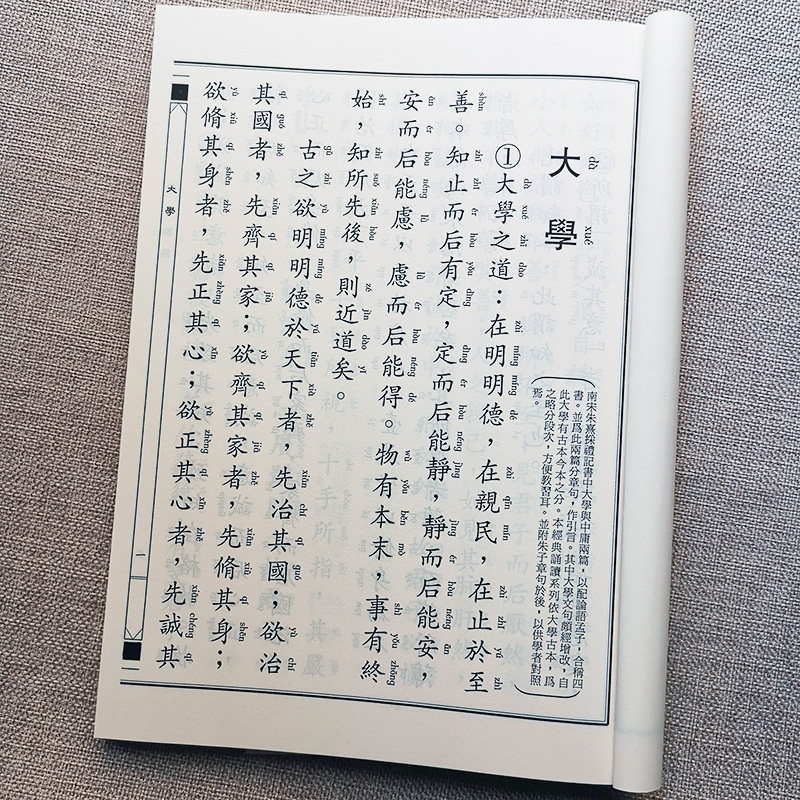 dà xué
大學
南宋朱熹採禮記書中大學與中庸兩篇，以配論語孟子，合稱四
書。並爲此兩篇分章句，作引言。其中大學文句頗經增改，自
此大學有古本今本之分。本經典誦讀系列依大學古本，爲
之略分段次，方便教習耳。並附朱子章句於後，以供學者對照
焉。
dà xué zhī dào zài míng míng dé zài qīn mín zài zhǐ yú zhì
①大學之道：在明明德，在親民，在止於至
shàn zhī zhǐ ér hòu yǒu dìng dìng ér hòu néng jìng jìng ér hòu néng ān
善。知止而后有定，定而后能靜，靜而后能安，
ān ér hòu néng lǜ lǜ ér hòu néng dé wù yǒu běn mò shì yǒu zhōng
安而后能慮，慮而后能得。物有本末，事有終
shǐ zhī suǒ xiān hòu zé jìn dào yǐ
始，知所先後，則近道矣。
gǔ zhī yù míng míng dé yú tiān xià zhě xiān chí qí guó yù chí
古之欲明明德於天下者，先治其國；欲治
qí guó zhě xiān qí qí jiā yù qí qí jiā zhě xiān xiū qí shēn
其國者，先齊其家；欲齊其家者，先脩其身；
yù xiū qí shēn zhě xiān zhèng qí xīn yù zhèng qí xīn zhě xiān chéng qí
欲脩其身者，先正其心；欲正其心者，先誠其
大學
一